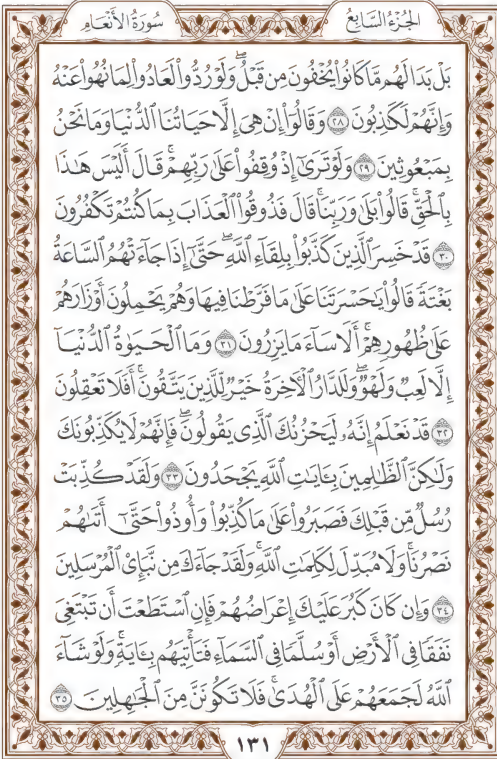 الجُزْءُ السَّابِعُ
سُورَةُ الأَنْعَامِ
بَلْ بَدَا لَهُم مَّا كَانُوا۟ يُخْفُونَ مِن قَبْلُ ۖ وَلَوْ رُدُّوا۟ لَعَادُوا۟ لِمَا نُهُوا۟ عَنْهُ
وَإِنَّهُمْ لَكَٰذِبُونَ ٢٨ وَقَالُوٓا۟ إِنْ هِىَ إِلَّا حَيَاتُنَا ٱلدُّنْيَا وَمَا نَحْنُ
بِمَبْعُوثِينَ ٢٩ وَلَوْ تَرَىٰٓ إِذْ وُقِفُوا۟ عَلَىٰ رَبِّهِمْ ۚ قَالَ أَلَيْسَ هَٰذَا
بِٱلْحَقِّ ۚ قَالُوا۟ بَلَىٰ وَرَبِّنَا ۚ قَالَ فَذُوقُوا۟ ٱلْعَذَابَ بِمَا كُنتُمْ تَكْفُرُونَ
٣٠ قَدْ خَسِرَ ٱلَّذِينَ كَذَّبُوا۟ بِلِقَآءِ ٱللَّهِ ۖ حَتَّىٰٓ إِذَا جَآءَتْهُمُ ٱلسَّاعَةُ
بَغْتَةً قَالُوا۟ يَٰحَسْرَتَنَا عَلَىٰ مَا فَرَّطْنَا فِيهَا وَهُمْ يَحْمِلُونَ أَوْزَارَهُمْ
عَلَىٰ ظُهُورِهِمْ ۚ أَلَا سَآءَ مَا يَزِرُونَ ٣١ وَمَا ٱلْحَيَوٰةُ ٱلدُّنْيَآ
إِلَّا لَعِبٌ وَلَهْوٌ ۖ وَلَلدَّارُ ٱلْءَاخِرَةُ خَيْرٌ لِّلَّذِينَ يَتَّقُونَ ۗ أَفَلَا تَعْقِلُونَ
٣٢ قَدْ نَعْلَمُ إِنَّهُۥ لَيَحْزُنُكَ ٱلَّذِى يَقُولُونَ ۖ فَإِنَّهُمْ لَا يُكَذِّبُونَكَ
وَلَٰكِنَّ ٱلظَّٰلِمِينَ بِـَٔايَٰتِ ٱللَّهِ يَجْحَدُونَ ٣٣ وَلَقَدْ كُذِّبَتْ
رُسُلٌ مِّن قَبْلِكَ فَصَبَرُوا۟ عَلَىٰ مَا كُذِّبُوا۟ وَأُوذُوا۟ حَتَّىٰٓ أَتَىٰهُمْ
نَصْرُنَا ۚ وَلَا مُبَدِّلَ لِكَلِمَٰتِ ٱللَّهِ ۚ وَلَقَدْ جَآءَكَ مِن نَّبَإِى۟ ٱلْمُرْسَلِينَ
٣٤ وَإِن كَانَ كَبُرَ عَلَيْكَ إِعْرَاضُهُمْ فَإِنِ ٱسْتَطَعْتَ أَن تَبْتَغِىَ
نَفَقًا فِى ٱلْأَرْضِ أَوْ سُلَّمًا فِى ٱلسَّمَآءِ فَتَأْتِيَهُم بِـَٔايَةٍ ۚ وَلَوْ شَآءَ
ٱللَّهُ لَجَمَعَهُمْ عَلَى ٱلْهُدَىٰ ۚ فَلَا تَكُونَنَّ مِنَ ٱلْجَٰهِلِينَ ٣٥
١٣١